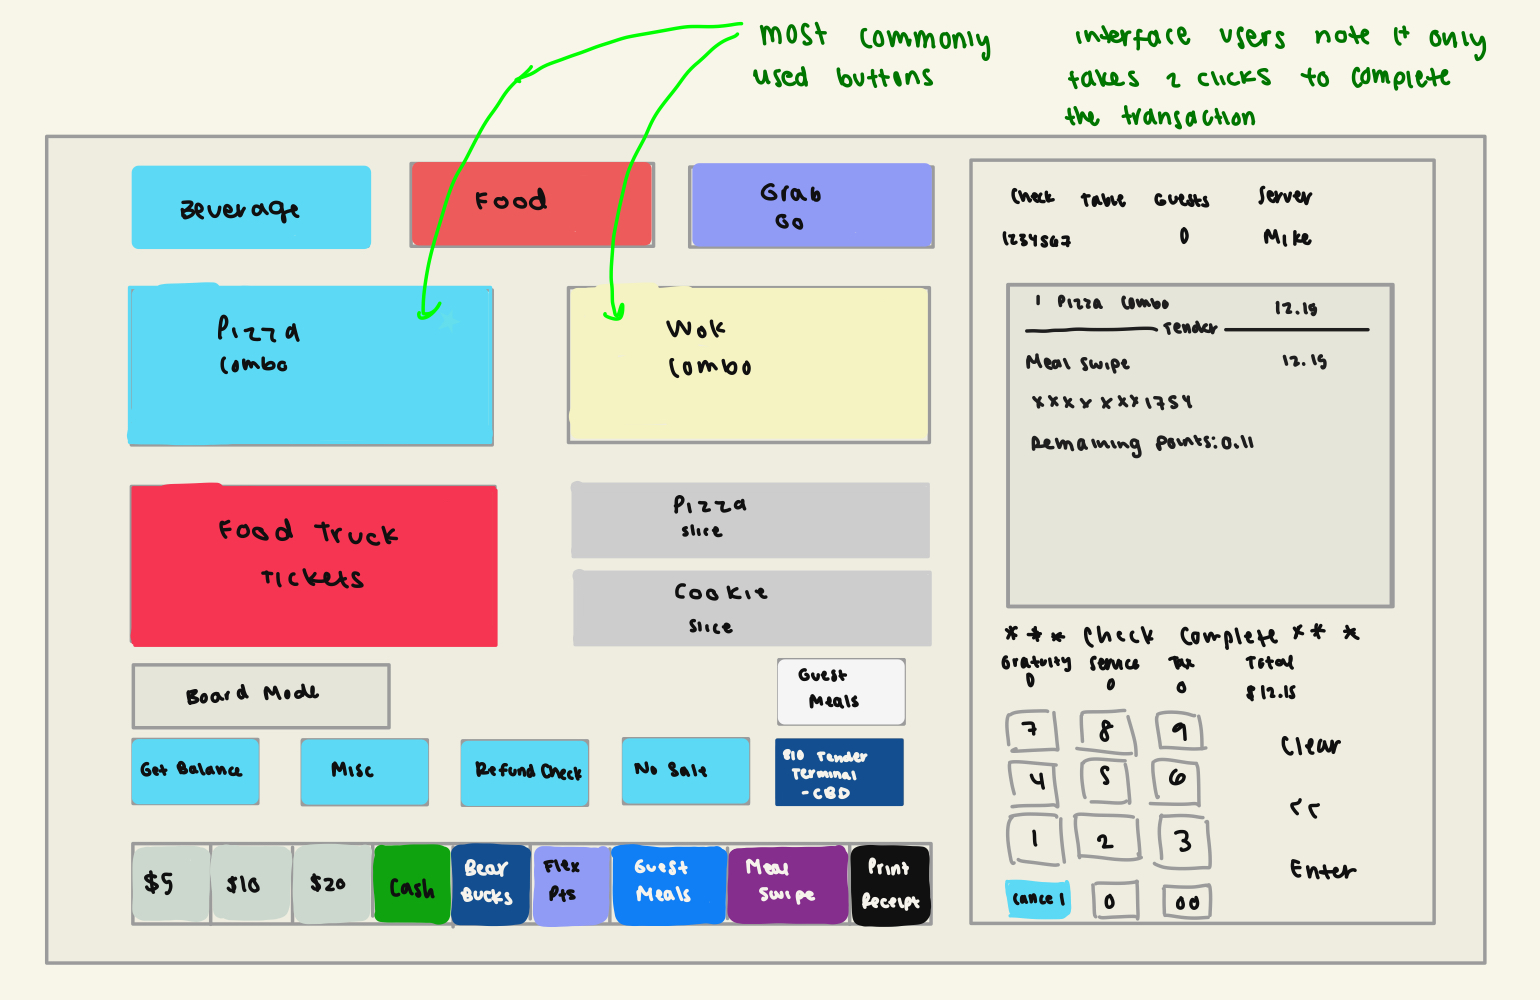 most commonly
used buttons
interface users note it only
takes 2 clicks to complete
the transaction
Beverage
Food
Grab
Go
Pizza
Combo
Wok
Combo
Food Truck
Tickets
Pizza
Slice
Cookie
Slice
Board Mode
Guest
Meals
Get Balance
Misc
Refund Check
No Sale
Tender
Terminal
- CBD
$5
$10
$20
Cash
Bear
Bucks
Flex
Pts
Guest
Meals
Meal
Swipe
Print
Receipt
Check Table Guests Server
1234567 0 Mike
1 Pizza Combo 12.15
Tender
Meal Swipe 12.15
xxxx xxx1754
Remaining Points: 0.11
*** Check Complete ***
Gratuity Service Tax Total
0 0 0 $12.15
7 8 9 Clear
4 5 6
1 2 3 Enter
Cancel 0 00